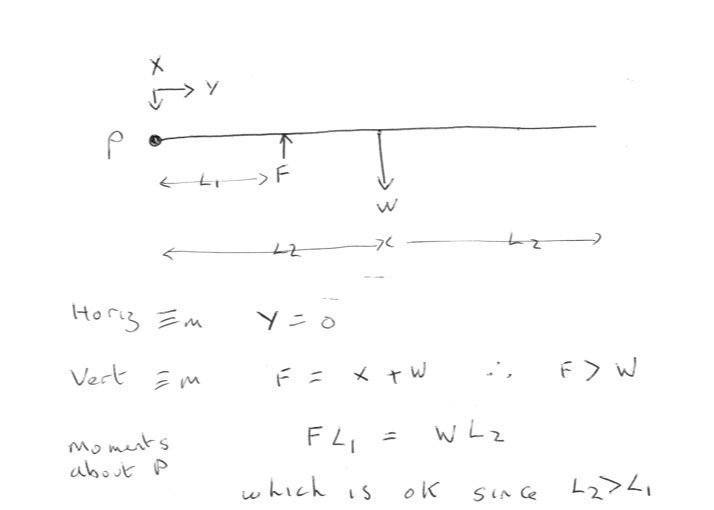 X
Y
P
L₁
F
W
L₂ L₂
Horiz ≡m Y = 0
Vert ≡m F = X + W ∴ F > W
Moments
about P
FL₁ = WL₂
which is ok since L₂>L₁